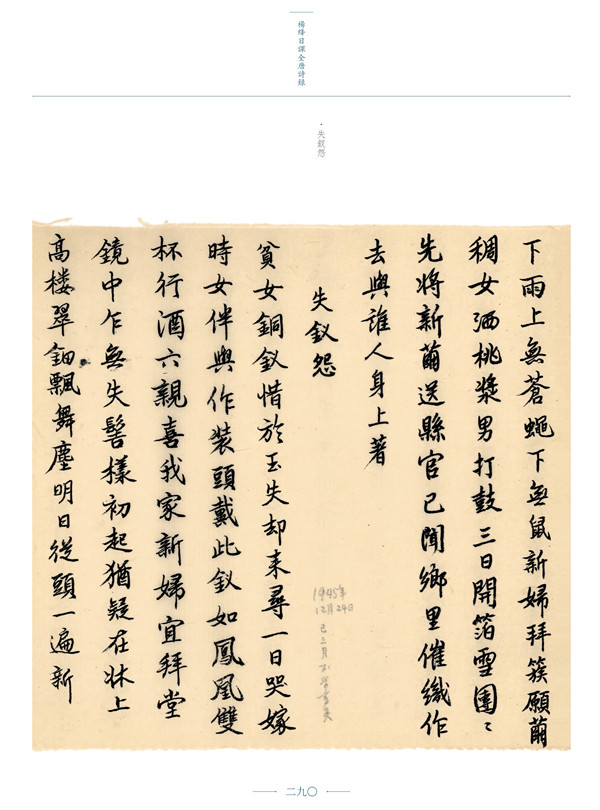 楊絳日課全唐詩錄
·失釵怨
下雨上無蒼蠅下無鼠新婦拜簇願繭
稠女洒桃漿男打鼓三日開箔雪團〻
先將新繭送縣官已聞鄉里催織作
去與誰人身上著
失釵怨
1945年
12月24日
已三月不學書矣
貧女銅釵惜於玉失却来尋一日哭嫁
時女伴與作装頭戴此釵如鳳凰雙
杯行酒六親喜我家新婦宜拜堂
鏡中乍無失髻樣初起猶疑在牀上
高楼翠鈿飄舞塵明日從頭一遍新
二九〇